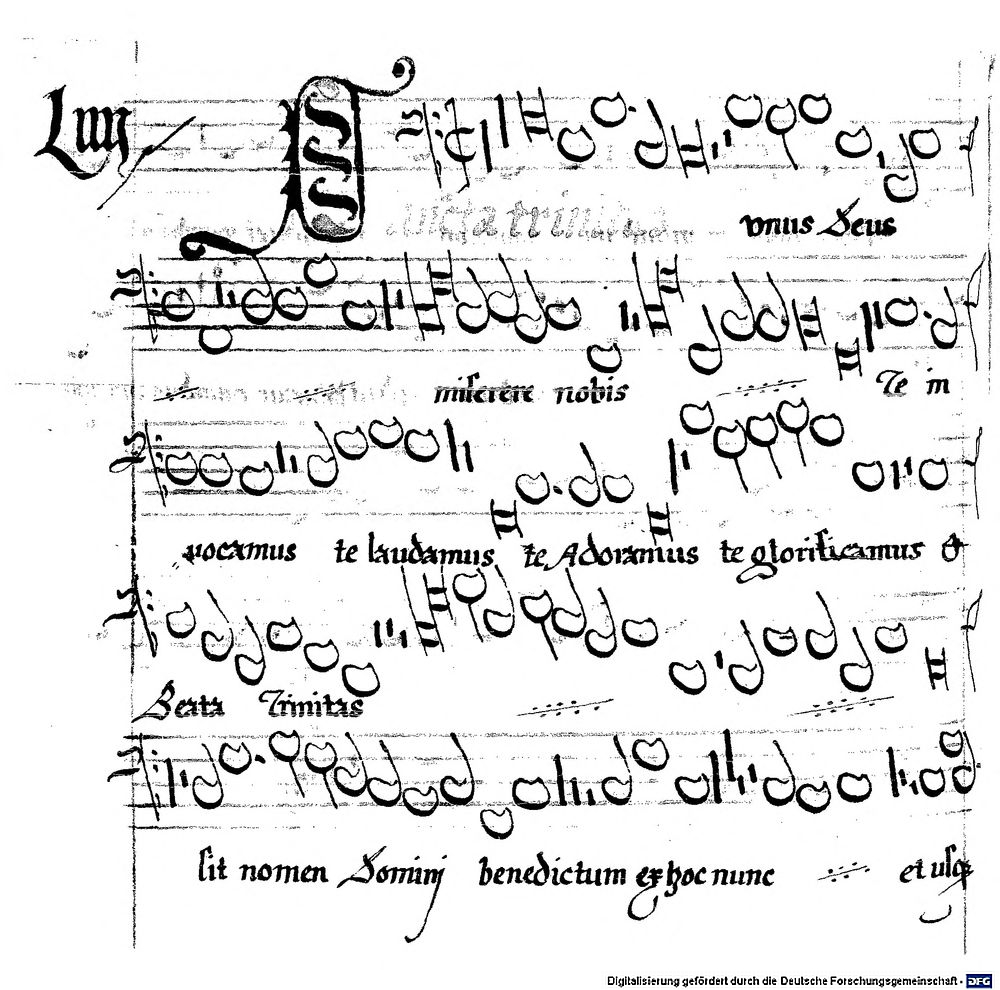 unus Deus
miserere nobis Te in
vocamus te laudamus te Adoramus te glorificamus O
Beata Trinitas
sit nomen Dominj benedictum ex hoc nunc et usq
Digitalisierung gefördert durch die Deutsche Forschungsgemeinschaft - DFG